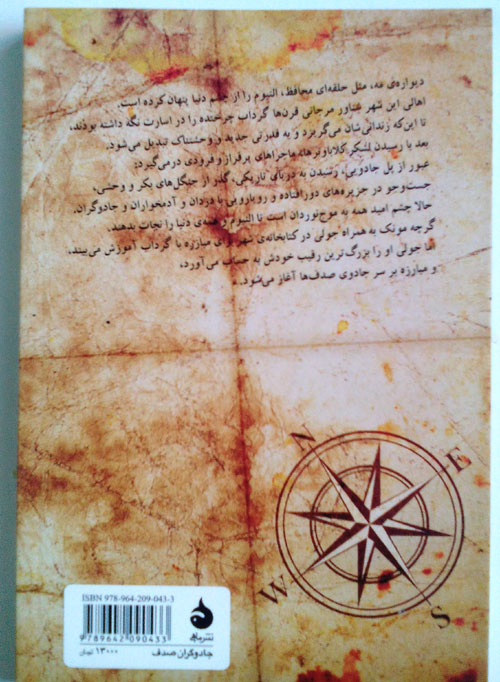 دیواره‌ی مه، مثل حلقه‌ای محافظ، الئیوم را از چشم دنیا پنهان کرده است.
اهالی این شهر شناور مرجانی قرن‌ها گرداب چرخنده را در اسارت نگه داشته بودند،
تا این‌که زندانی‌شان می‌گریزد و به قدرتی جدید و وحشتناک تبدیل می‌شود.
بعد با رسیدن لشکر کلاباوترها، ماجراهای پرفراز و فرودی درمی‌گیرد:
عبور از پل جادویی، رسیدن به دریای تاریکی، گذر از جنگل‌های بکر و وحشی،
جست‌وجو در جزیره‌های دورافتاده و رویارویی با دزدان و آدمخواران و جادوگران.
حالا چشم امید همه به موج‌نوردان است تا الئیوم و همه‌ی دنیا را نجات بدهند.
گرچه مونک به همراه جولی در کتابخانه‌ی شهر برای مبارزه با گرداب آموزش می‌بیند،
اما جولی او را بزرگ‌ترین رقیب خودش به حساب می‌آورد،
و مبارزه بر سر جادوی صدف‌ها آغاز می‌شود.
N
E
W
S
ISBN 978-964-209-043-3
9789642090433
نشر ماهی
جادوگران صدف
۱۳۰۰۰ تومان